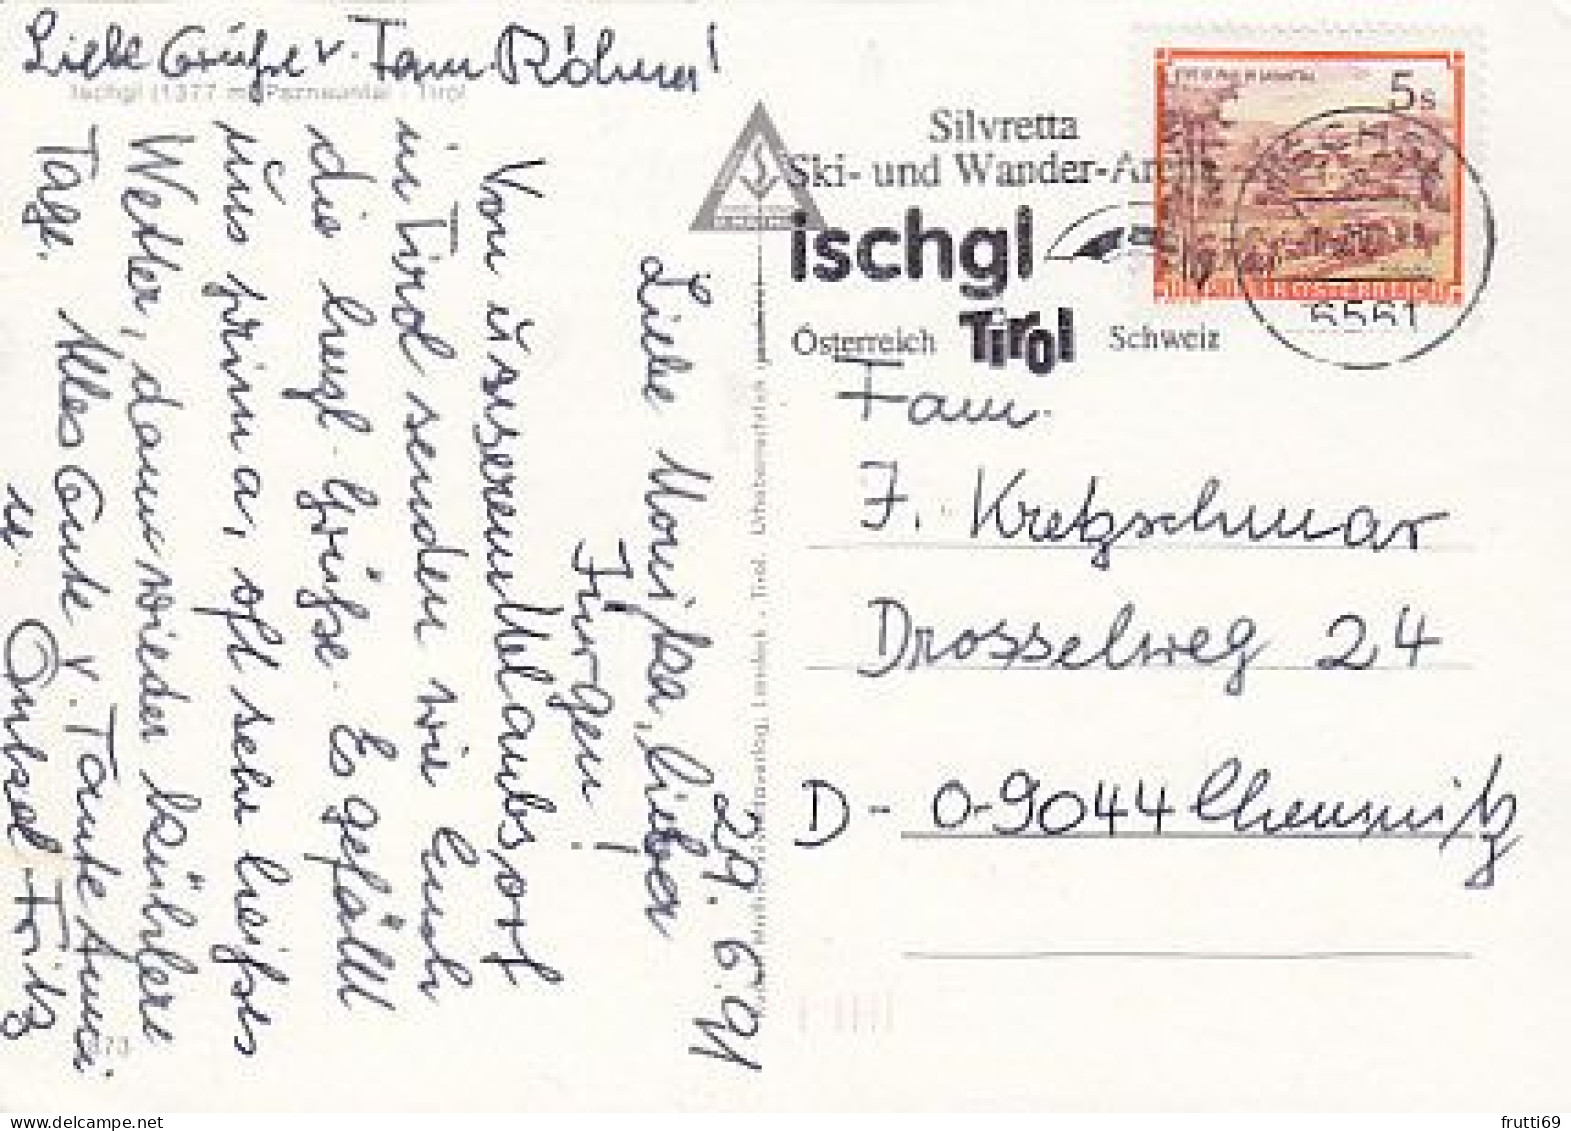 Liebe Grüße v. Fam. Röhner!
Ischgl (1377 m) Paznauntal - Tirol
29. 6. 91
Liebe Monika, lieber
Jürgen!
Von unserem Urlaubsort
in Tirol senden wir Euch
die herzl. Grüße. Es gefällt
uns prima, oft sehr heißes
Wetter, dann wieder kühlere
Tage. Alles Gute v. Tante Anni
u. Onkel Fritz
Silvretta
Ski- und Wander-Arena
ischgl
Tirol
Österreich
Schweiz
5s
REPUBLIK ÖSTERREICH
6561
Fam.
J. Kretzschmar
Drosselweg 24
D - O-9044 Chemnitz
frutti69